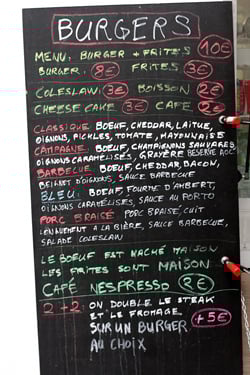 BURGERS
MENU: BURGER + FRITES 10€
BURGER: 8€ FRITES 3€
COLESLAW: 3€ BOISSON 2€
CHEESE CAKE 3€ CAFE 2€
CLASSIQUE: BOEUF, CHEDDAR, LAITUE,
OIGNONS, PICKLES, TOMATE, MAYONNAISE
CAMPAGNE: BOEUF, CHAMPIGNONS SAUVAGES,
OIGNONS CARAMELISÉS, GRUYÈRE RÉSERVE AOC
BARBECUE: BOEUF, CHEDDAR, BACON,
BEIGNET D'OIGNONS, SAUCE BARBECUE
BLEU: BOEUF, FOURME D'AMBERT,
OIGNONS CARAMÉLISÉS, SAUCE AU PORTO
PORC BRAISÉ: PORC BRAISÉ, CUIT
LONGUEMENT A LA BIÈRE, SAUCE BARBECUE,
SALADE COLESLAW
LE BOEUF EST HACHÉ MAISON
LES FRITES SONT MAISON
CAFÉ NESPRESSO 2€
2+2: ON DOUBLE LE STEAK
ET LE FROMAGE +5€
SUR UN BURGER
AU CHOIX